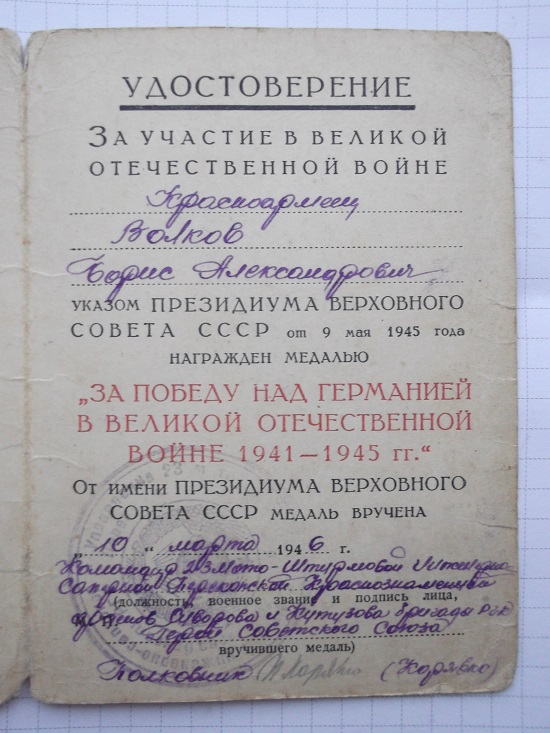 УДОСТОВЕРЕНИЕ
ЗА УЧАСТИЕ В ВЕЛИКОЙ
ОТЕЧЕСТВЕННОЙ ВОЙНЕ
Красноармеец
Волков
Борис Александрович
УКАЗОМ ПРЕЗИДИУМА ВЕРХОВНОГО
СОВЕТА СССР от 9 мая 1945 года
НАГРАЖДЕН МЕДАЛЬЮ
„ЗА ПОБЕДУ НАД ГЕРМАНИЕЙ
В ВЕЛИКОЙ ОТЕЧЕСТВЕННОЙ
ВОЙНЕ 1941—1945 гг.“
ОТ ИМЕНИ ПРЕЗИДИУМА ВЕРХОВНОГО
СОВЕТА СССР МЕДАЛЬ ВРУЧЕНА
„10“ марта 1946 г.
Командир 23 Мото-Штурмовой Инженерно
Саперной Перекопской Краснознаменной
(должность, военное звание и подпись лица,
орденов Суворова и Кутузова бригады РГК
Герой Советского Союза
вручившего медаль)
Полковник (Корявко)